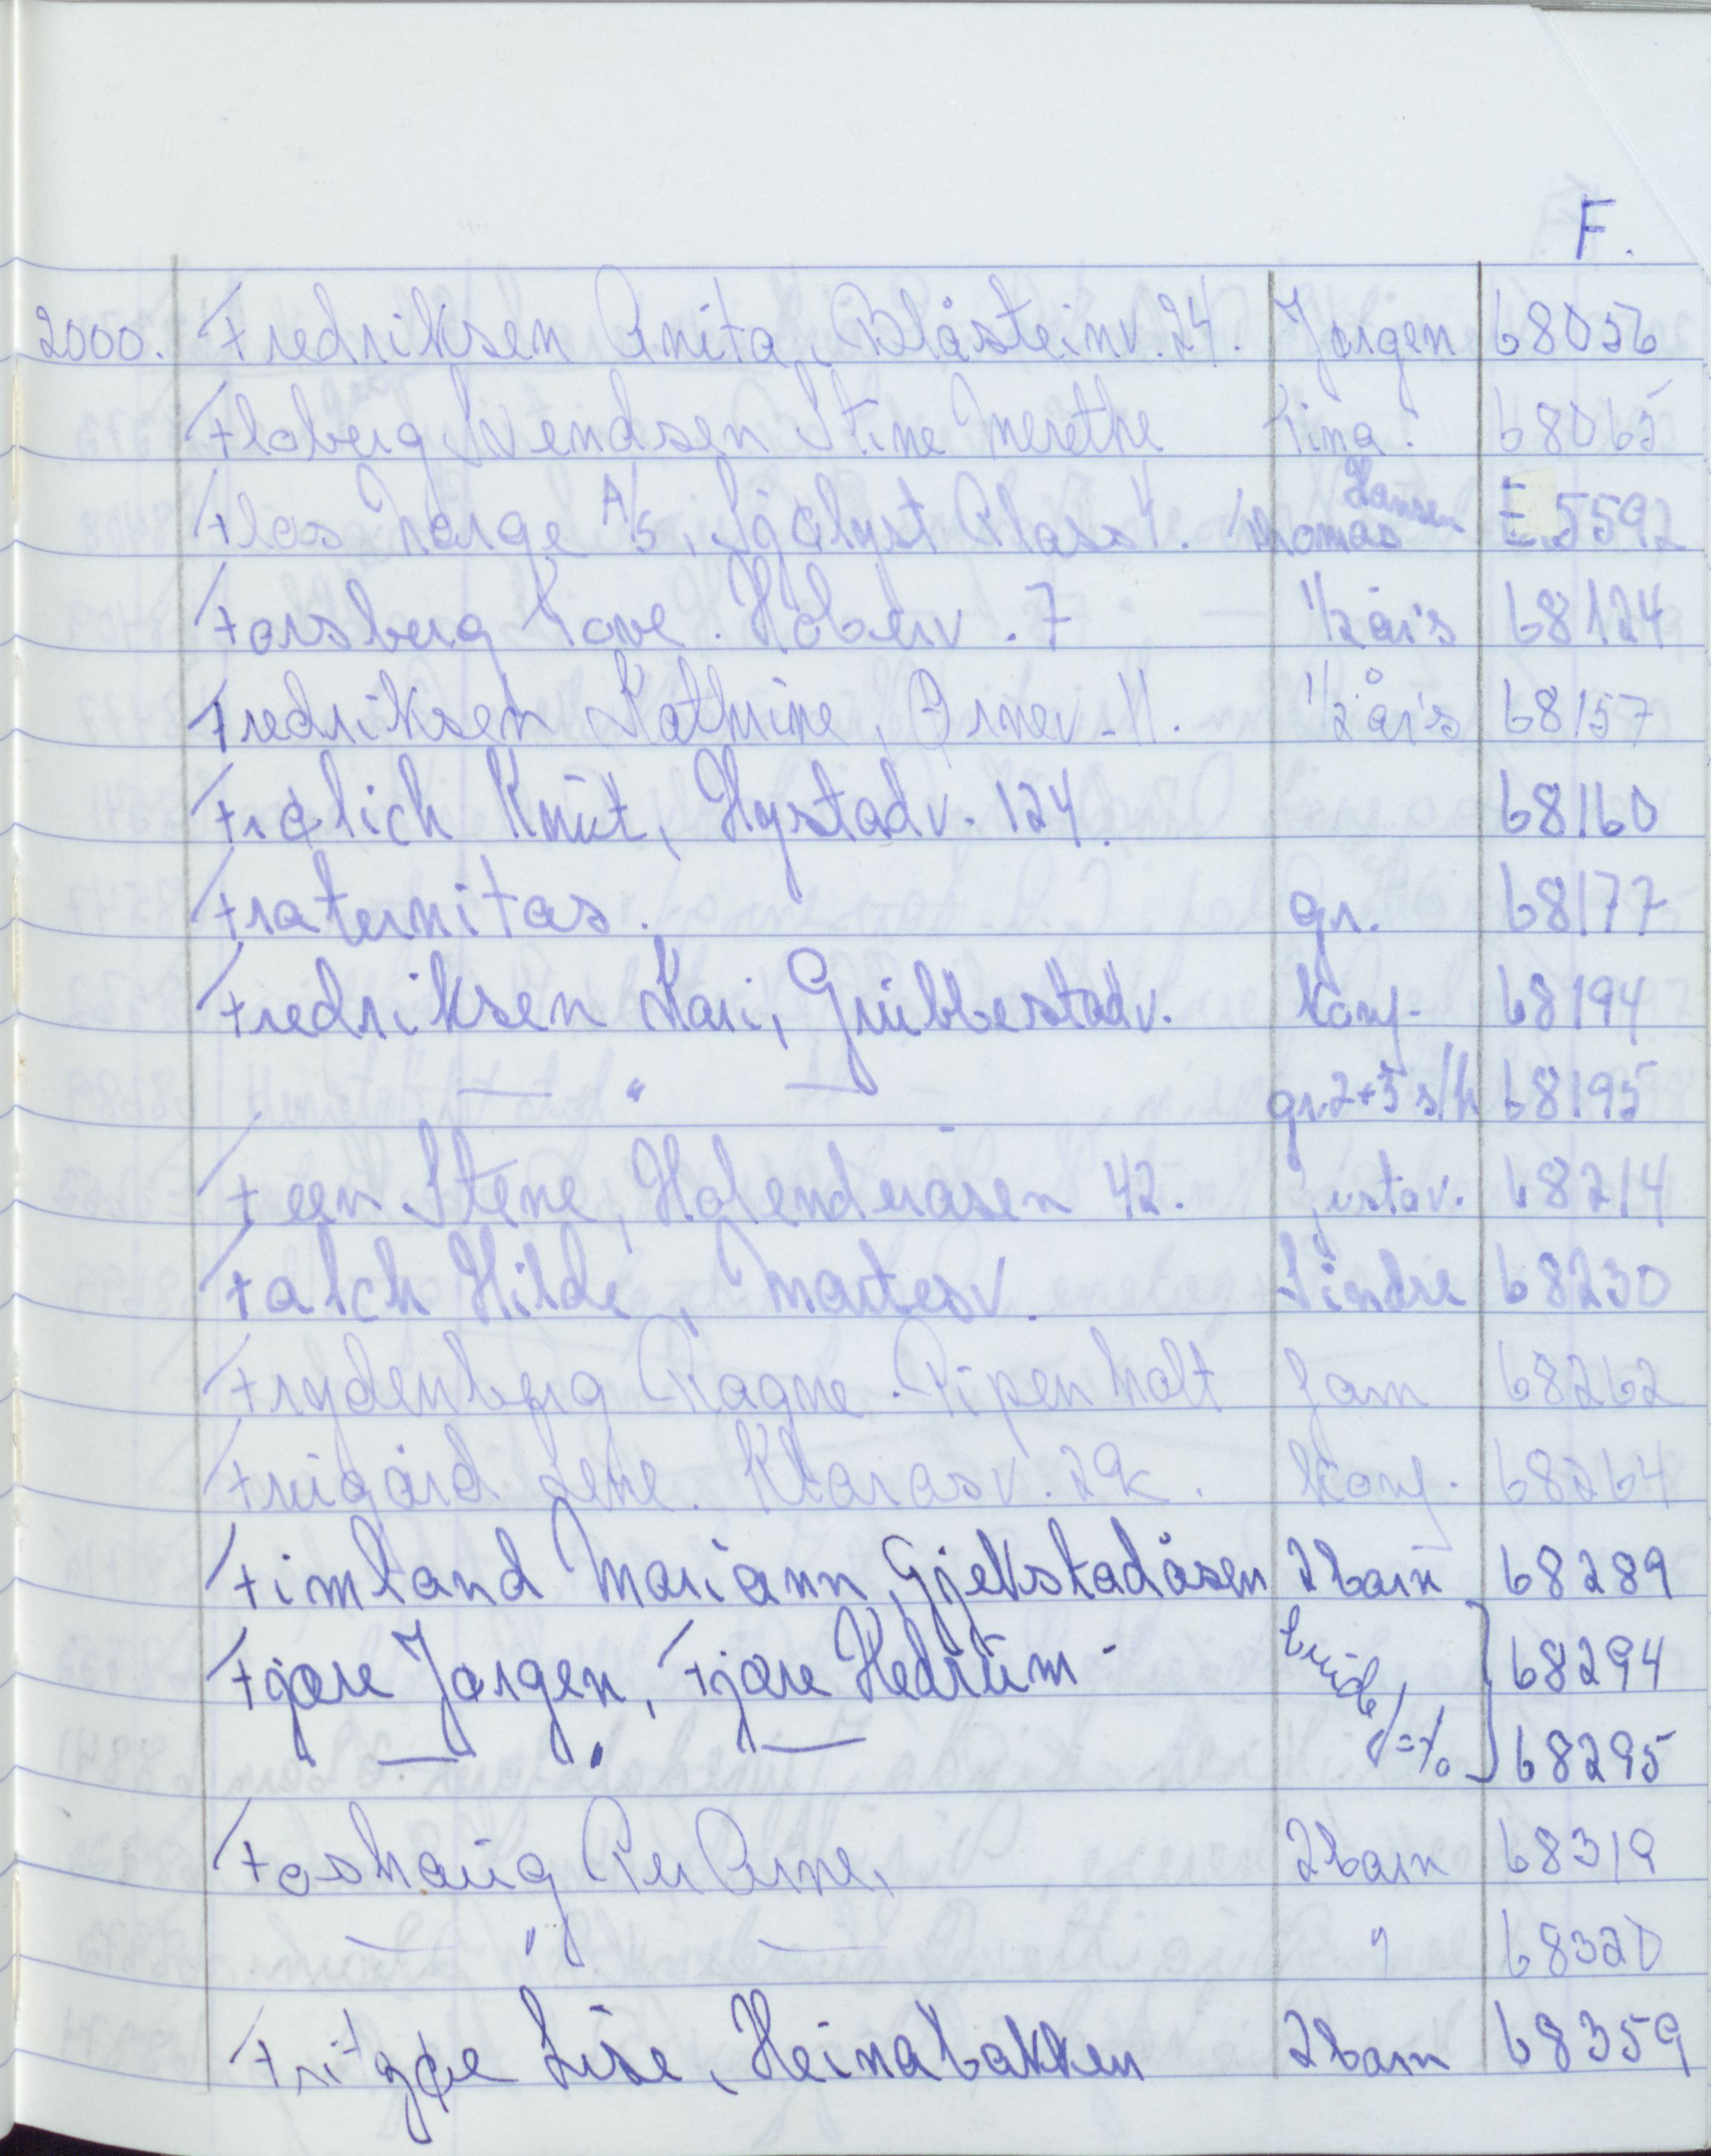 F.
2000. Fredriksen Anita, Blåsteinv. 24. Jørgen 68056
Floberg Svendsen Stine Merethe Tina. 68065
Flos Norge A/S, Sjølyst Plass 4. Thomas Hansen E.5592
Forsberg Tove. Høberv. 7 1/2 år's 68124
Fredriksen Kathrine, Ørnev. 11. 1/2 år's 68157
Frølich Knut, Hystadv. 124. 68160
Fraternitas. gr. 68177
Fredriksen Kari, Grubbestadv. Konf. 68194
— " — gr. 2+3 s/h 68195
Feen Stene, Holenderåsen 42. Gustav. 68214
Falch Hilde, Martesv. Sindre 68230
Frydenberg Ragne. Pipenholt fam 68262
Fruigård Lene. Klarasv. 29k. Konf. 68264
Fimland Mariann, Gjekstadåsen 2 barn 68289
Fjære Jørgen, Fjære Hedrum - brude/=% 68294
— " — 68295
Foshaug Per Arne, 2 barn 68319
— " — " 68320
Fritzøe Lise, Heinabakken 2 barn 68359